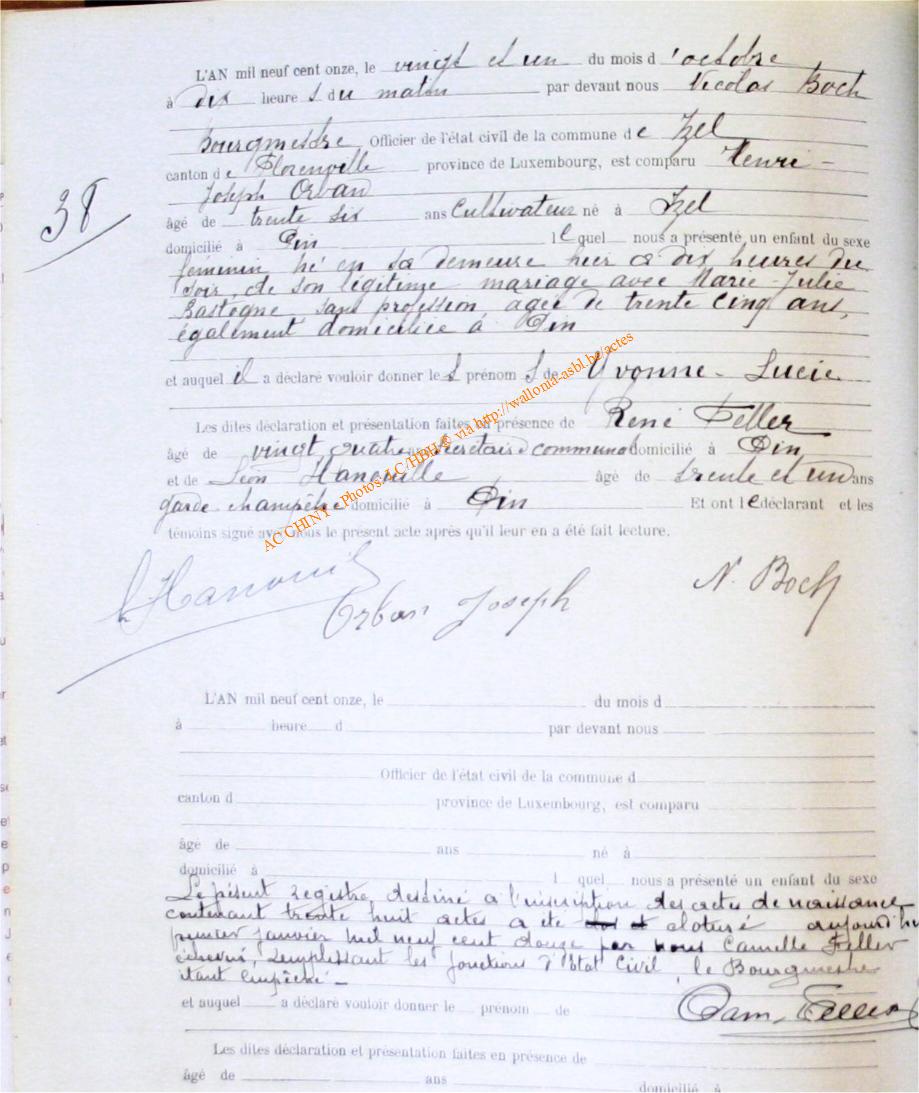 L'AN mil neuf cent onze, le vingt et un du mois d'octobre
à dix heures du matin par devant nous Nicolas Boch
Bourgmestre Officier de l'état civil de la commune de Izel
canton de Florenville province de Luxembourg, est comparu Henri-
Joseph Orban
38
âgé de trente six ans Cultivateur né à Izel
domicilié à Pin lequel nous a présenté un enfant du sexe
féminin né en sa demeure hier à dix heures du
soir, de son légitime mariage avec Marie-Julie
Bastogne, sans profession, agée de trente cinq ans,
également domiciliée à Pin
et auquel il a déclaré vouloir donner les prénoms de Yvonne-Lucie
Les dites déclaration et présentation faites en présence de René Feller
âgé de vingt quatre ans secrétaire communal domicilié à Pin
et de Léon Hanouille âgé de trente et un ans
garde champêtre domicilié à Pin Et ont le déclarant et les
témoins signé avec nous le présent acte après qu'il leur en a été fait lecture.
AC CHINY - Photos LC/HBH © via http://wallonia-asbl.be/actes
Orban Joseph
N. Boch
L'AN mil neuf cent onze, le du mois d
à heure d par devant nous
Officier de l'état civil de la commune d
canton d province de Luxembourg, est comparu
âgé de ans né à
domicilié à l quel nous a présenté un enfant du sexe
Le présent registre, destiné à l'inscription des actes de naissance
contenant trente huit actes a été cloturé aujourd'hui
premier janvier mil neuf cent douze par nous Camille Feller
échevin, remplissant les fonctions d'Etat Civil, le Bourgmestre
étant empêché -
et auquel a déclaré vouloir donner le prénom de
Cam. Feller
Les dites déclaration et présentation faites en présence de
âgé de ans domicilié à